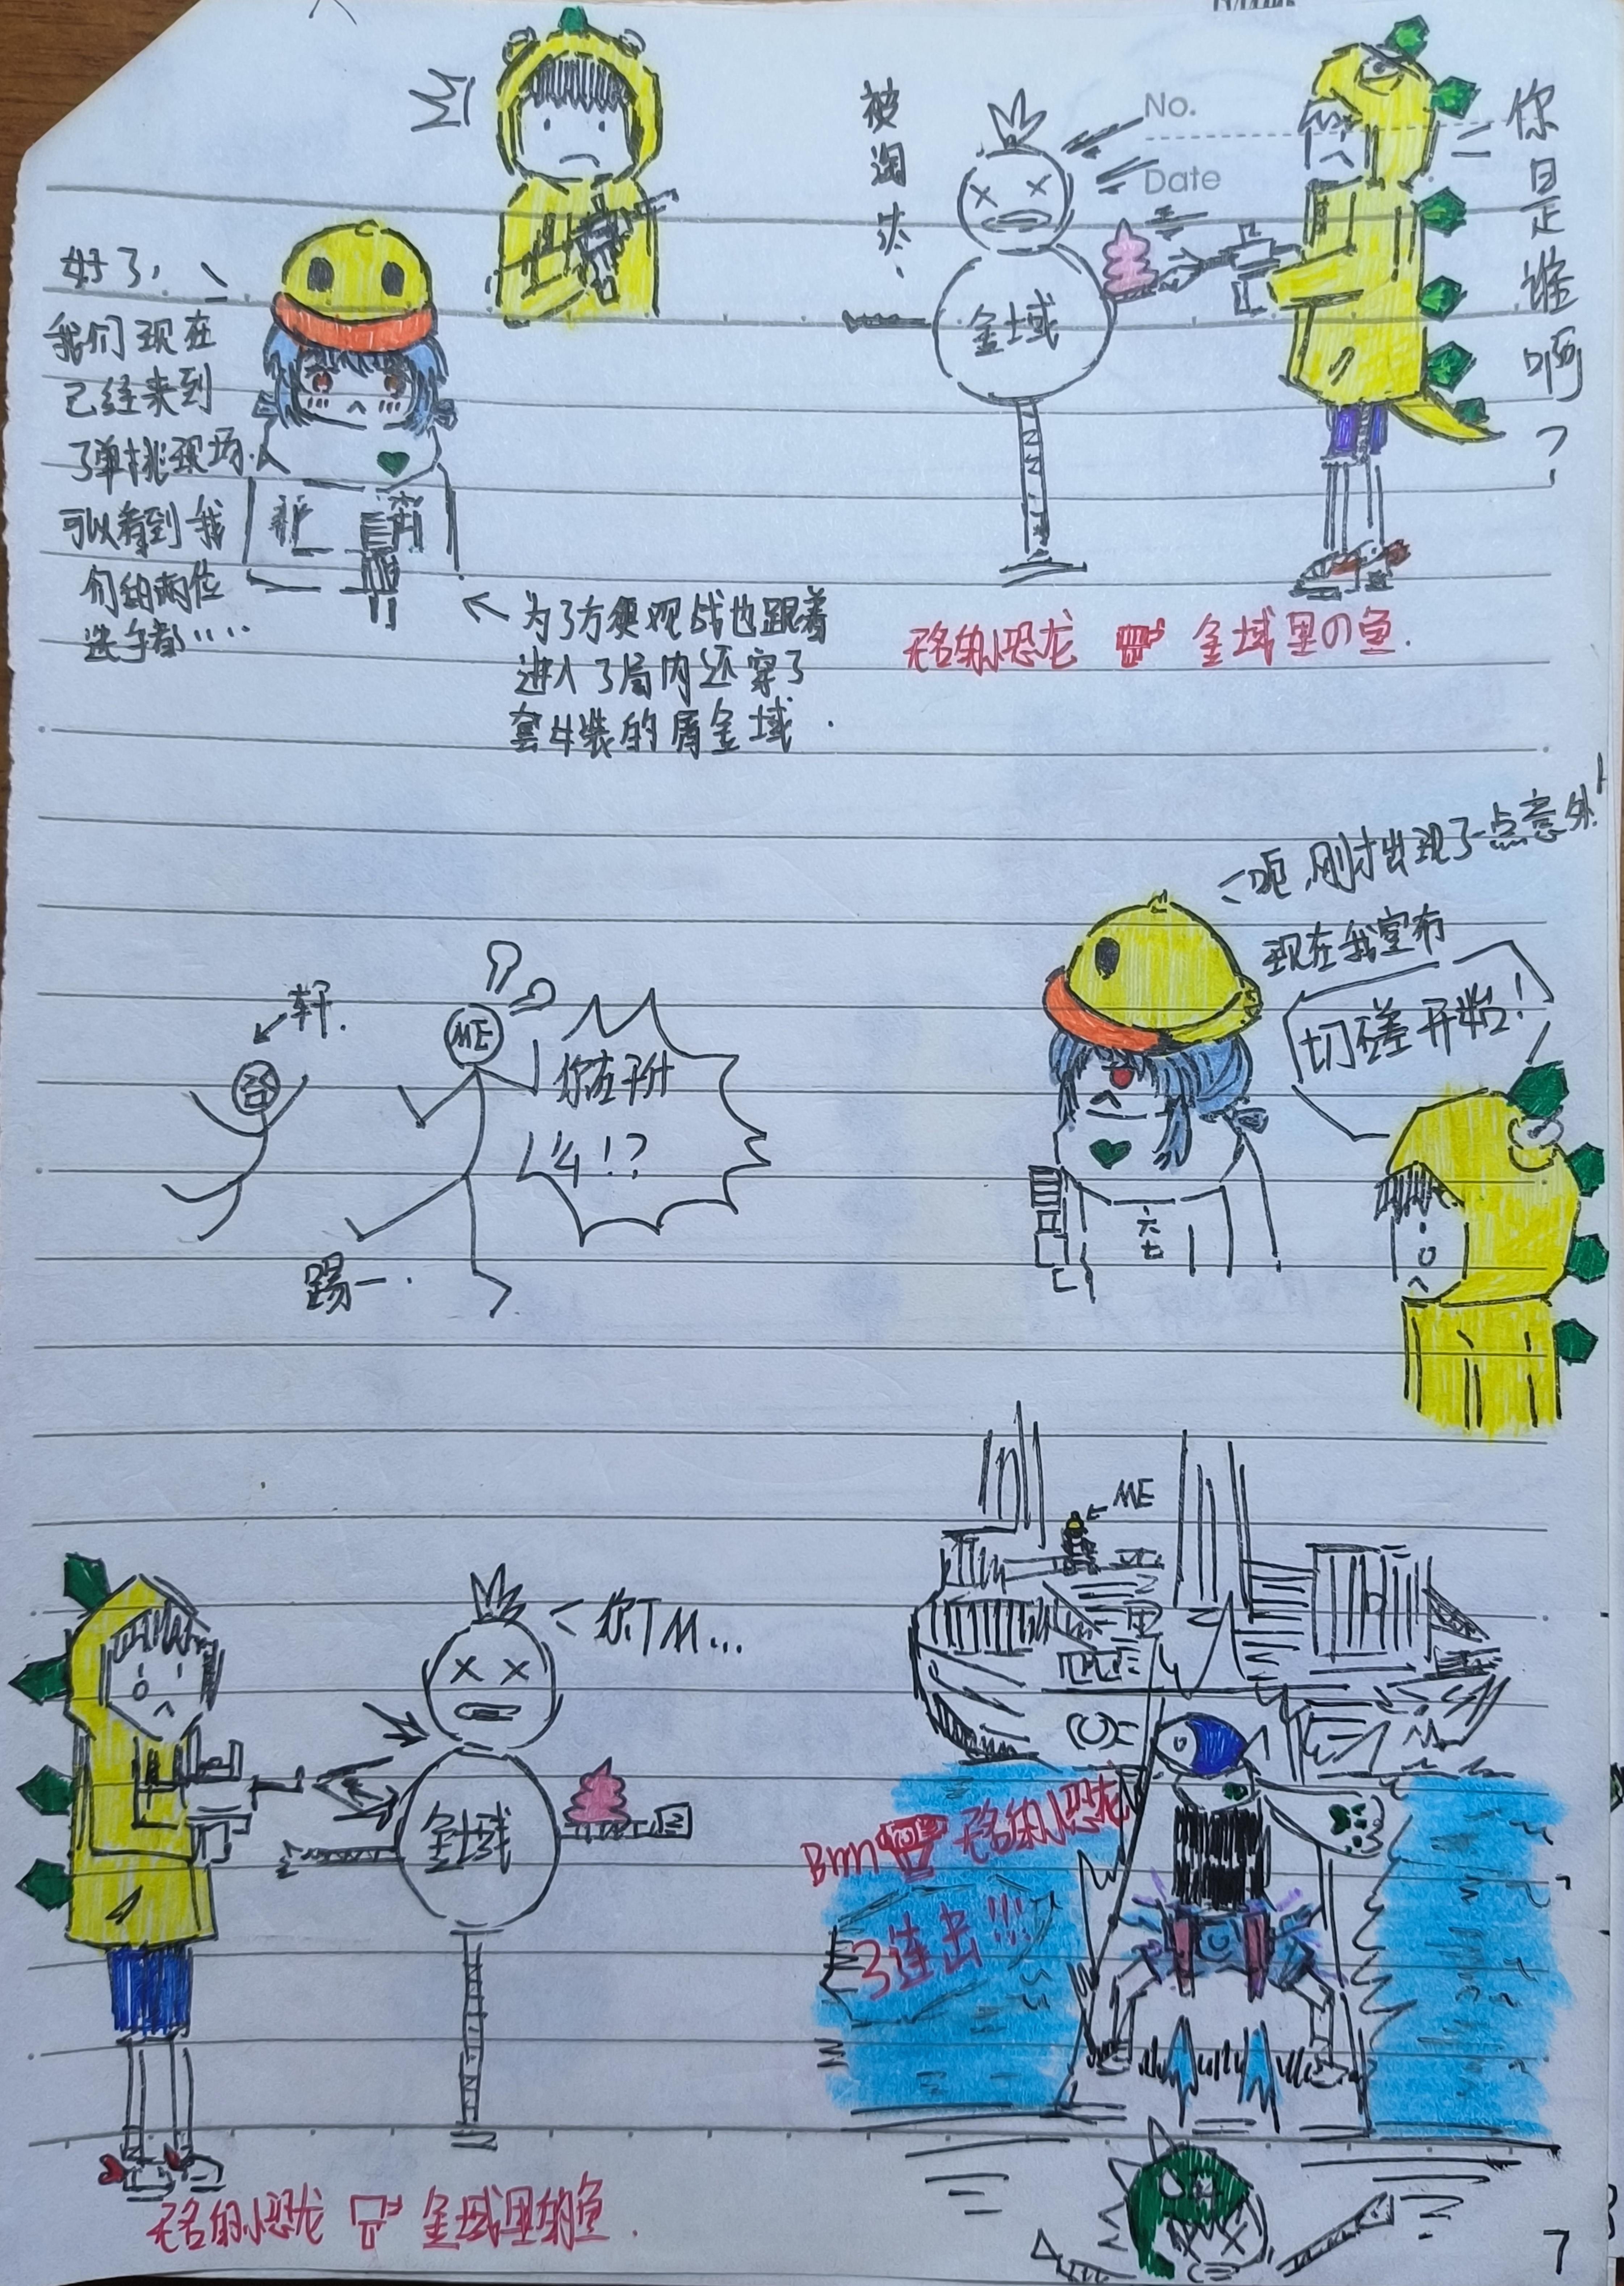 好了，
我们现在
已经来到
了单挑现场.
可以看到我
们的两位
选手都····
← 为了方便观战也跟着
进入了局内还穿了
套牛装的屑金域.
被淘汰、
No.
Date
金域
你是谁啊？
无名的小恐龙 金域里の鱼.
轩.
ME
你在干什
么!?
踢一.
呃,刚才出现了一点意外!
现在我宣布
切磋开始!
六
七
你TM...
金域
无名的小恐龙 金域里的鱼.
ME
Bmn 无名的小恐龙
3连击!!!
7